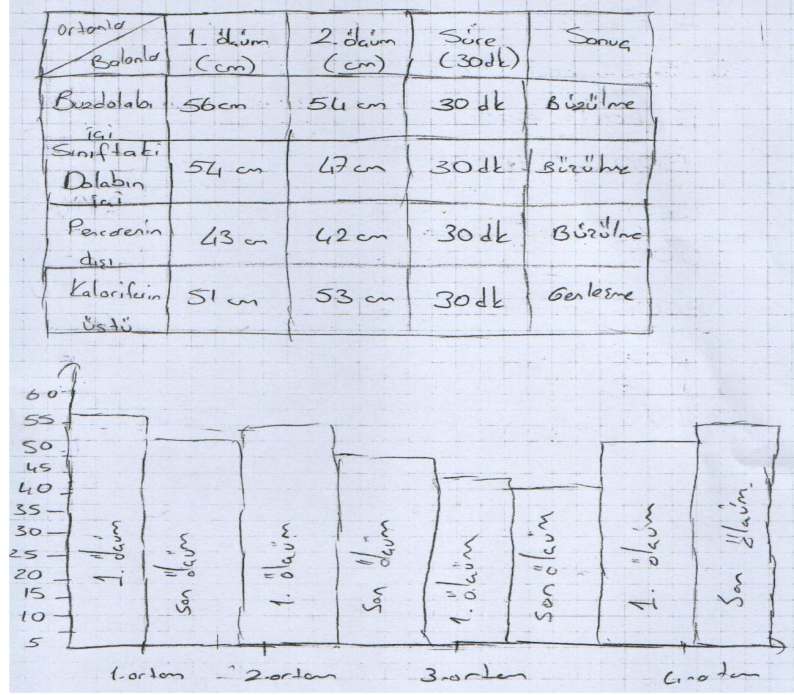 Ortamla
Balonla
1. ölçüm
(cm)
2. ölçüm
(cm)
Süre
(30dk)
Sonuç
Buzdolabı
içi
56 cm
54 cm
30 dk
Büzülme
Sınıftaki
Dolabın
içi
54 cm
47 cm
30 dk
Büzülme
Pencerenin
dışı
43 cm
42 cm
30 dk
Büzülme
Kaloriferin
üstü
51 cm
53 cm
30 dk
Genleşme
60
55
50
45
40
35
30
25
20
15
10
5
1. ölçüm
Son ölçüm
1. ölçüm
Son ölçüm
1. ölçüm
Son ölçüm
1. ölçüm
Son ölçüm
1.ortam
2.ortam
3.ortam
4.ortam